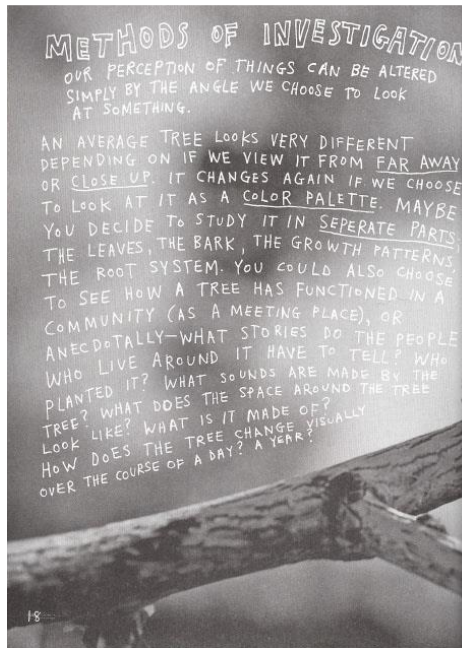 METHODS OF INVESTIGATION
OUR PERCEPTION OF THINGS CAN BE ALTERED
SIMPLY BY THE ANGLE WE CHOOSE TO LOOK
AT SOMETHING.
AN AVERAGE TREE LOOKS VERY DIFFERENT
DEPENDING ON IF WE VIEW IT FROM FAR AWAY
OR CLOSE UP. IT CHANGES AGAIN IF WE CHOOSE
TO LOOK AT IT AS A COLOR PALETTE. MAYBE
YOU DECIDE TO STUDY IT IN SEPERATE PARTS;
THE LEAVES, THE BARK, THE GROWTH PATTERNS,
THE ROOT SYSTEM. YOU COULD ALSO CHOOSE
TO SEE HOW A TREE HAS FUNCTIONED IN A
COMMUNITY (AS A MEETING PLACE), OR
ANECDOTALLY—WHAT STORIES DO THE PEOPLE
WHO LIVE AROUND IT HAVE TO TELL? WHO
PLANTED IT? WHAT SOUNDS ARE MADE BY THE
TREE? WHAT DOES THE SPACE AROUND THE TREE
LOOK LIKE? WHAT IS IT MADE OF?
HOW DOES THE TREE CHANGE VISUALLY
OVER THE COURSE OF A DAY? A YEAR?
18